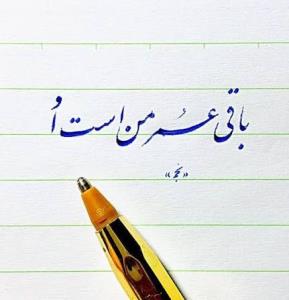 باقی عمر من است اُو